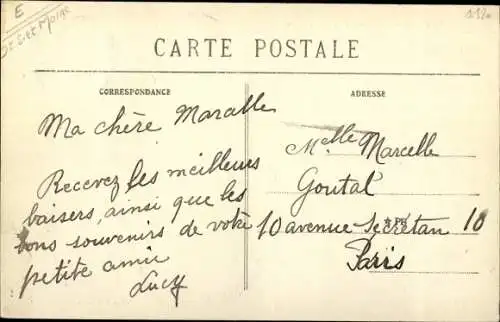 E
St S-et-Marne
132
CARTE POSTALE
CORRESPONDANCE
ADRESSE
Ma chère Marcelle
Recevez les meilleurs
baisers, ainsi que les
bons souvenirs de votre
petite amie
Lucy
Melle Marcelle
Goutal
10 avenue Secretan 10
Paris